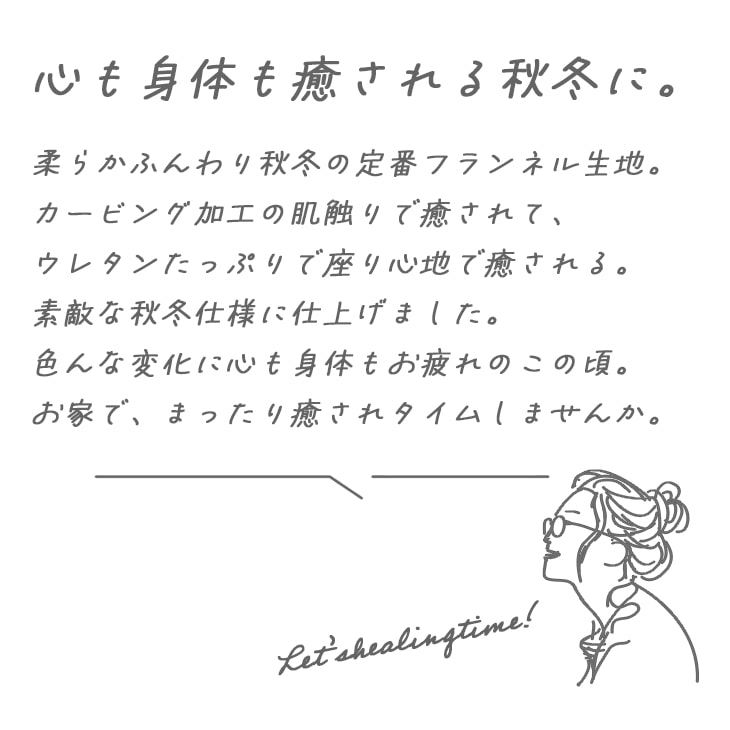 心も身体も癒される秋冬に。
柔らかふんわり秋冬の定番フランネル生地。
カービング加工の肌触りで癒されて、
ウレタンたっぷりで座り心地で癒される。
素敵な秋冬仕様に仕上げました。
色んな変化に心も身体もお疲れのこの頃。
お家で、まったり癒されタイムしませんか。
Let'shealingtime!